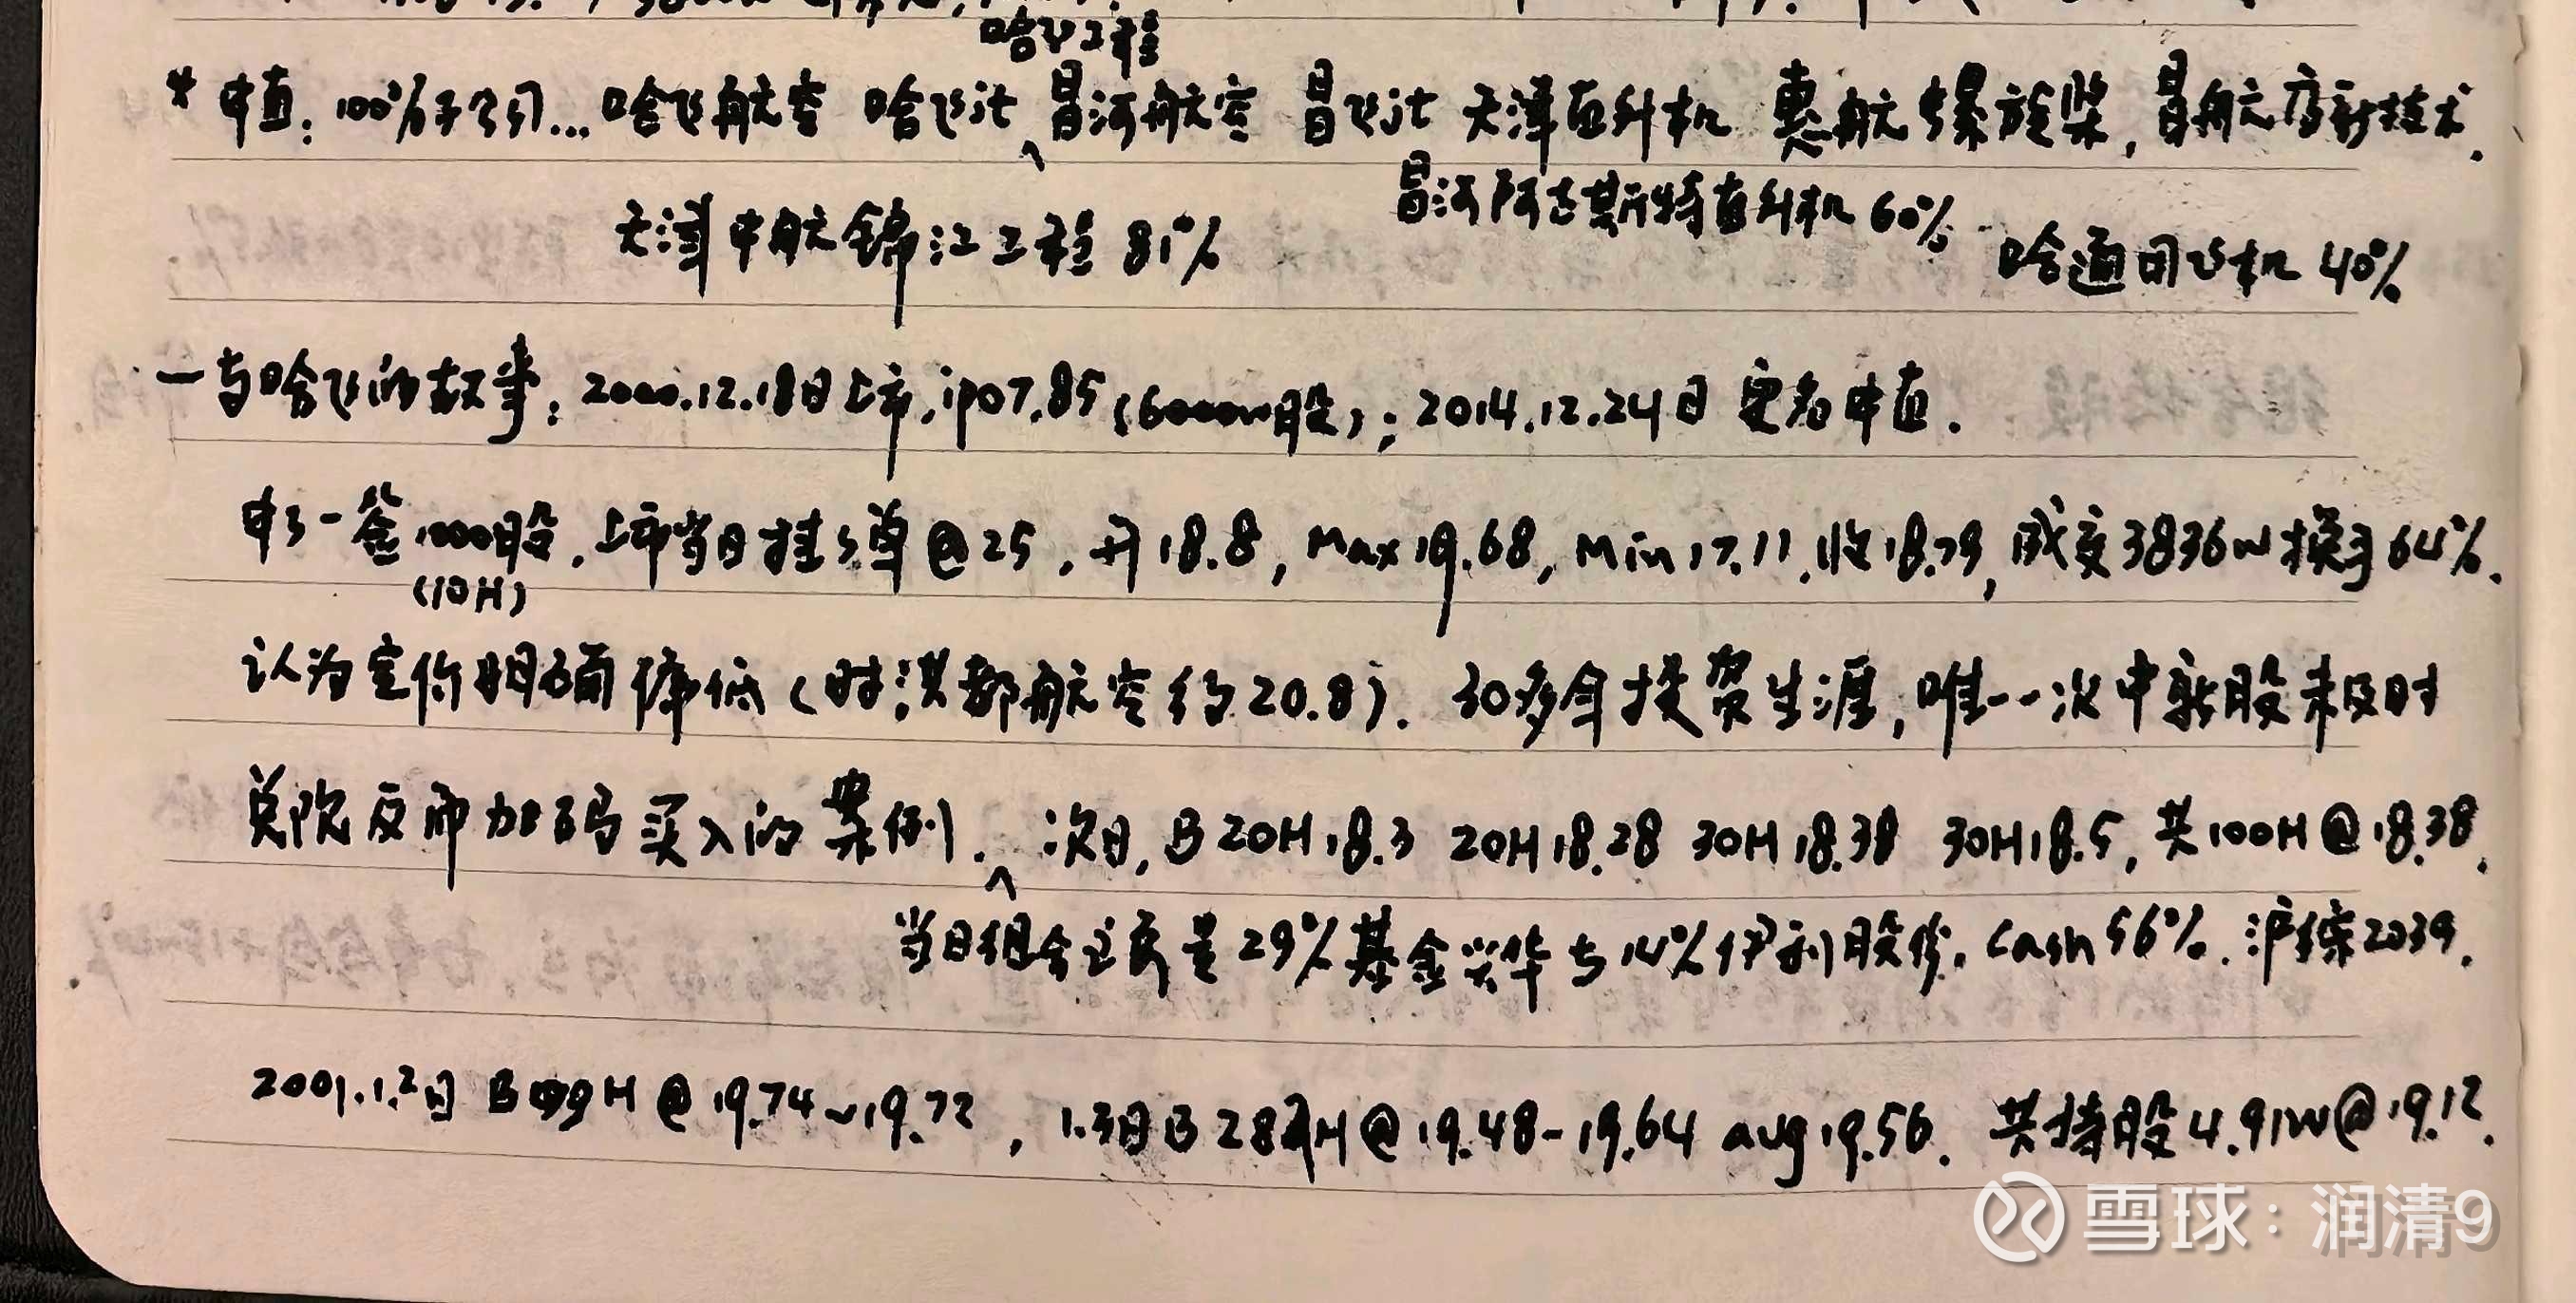 哈飞工程
* 中直：100%子公司…哈飞航空 哈飞设计 昌河航空 昌飞设计 天津直升机 惠航螺旋桨，昌航高新技术．
昌河阿古斯特直升机60%
天津中航锦江工程81%
哈通用飞机40%
一与哈飞的故事：2000.12.18日上市，ipo7.85（6000w股）；2014.12.24日更名中直．
中了一签1000股，上市当日挂了单@25，开18.8，Max19.68，Min17.11，收18.79，成交3836w换手64%．
(10H)
认为定价明确偏低（时洪都航空约20.8）．30多年投资生涯，唯一一次中新股未及时
兑现反而加码买入的案例．次日，B 20H18.3 20H18.28 30H18.38 30H18.5，共100H@18.38．
当日组合主要是29%基金兴华与14%伊利股份．Cash 56%．沪综2039．
2001.1.2日 B H@19.74~19.72，1.3日B 28 H@19.48-19.64 avg19.56．共持股4.91w@19.12．
雪球：润清9